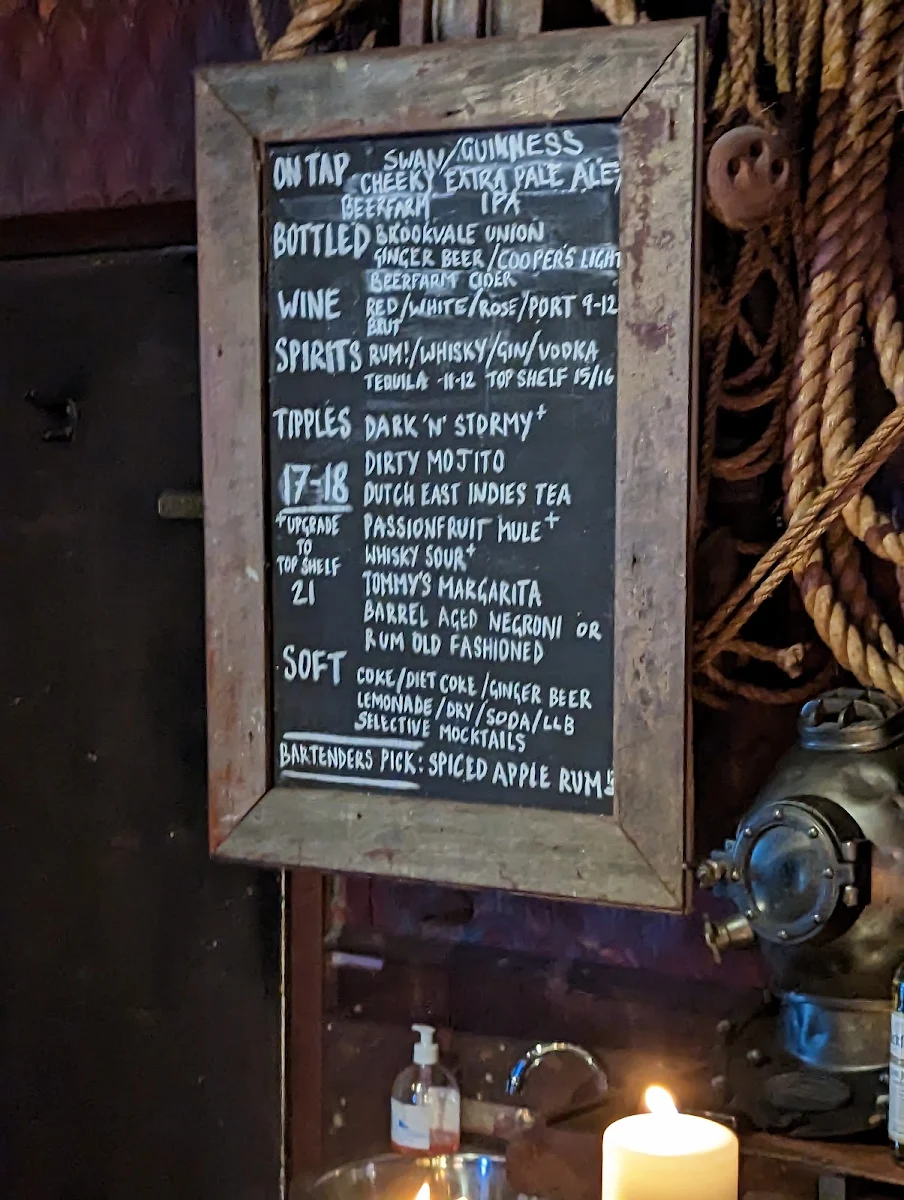 ON TAP SWAN/GUINNESS
CHEEKY EXTRA PALE ALE,
BEERFARM IPA
BOTTLED BROOKVALE UNION
GINGER BEER/COOPER'S LIGHT
BEERFARM CIDER
WINE RED/WHITE/ROSE/PORT 9-12
BRUT
SPIRITS RUM!/WHISKY/GIN/VODKA
TEQUILA -11-12 TOP SHELF 15/16
TIPPLES DARK 'N' STORMY+
DIRTY MOJITO
17-18 DUTCH EAST INDIES TEA
+UPGRADE PASSIONFRUIT MULE+
TO WHISKY SOUR+
TOP SHELF
21 TOMMY'S MARGARITA
BARREL AGED NEGRONI OR
RUM OLD FASHIONED
SOFT COKE/DIET COKE/GINGER BEER
LEMONADE/DRY/SODA/LLB
SELECTIVE MOCKTAILS
BARTENDERS PICK: SPICED APPLE RUM!